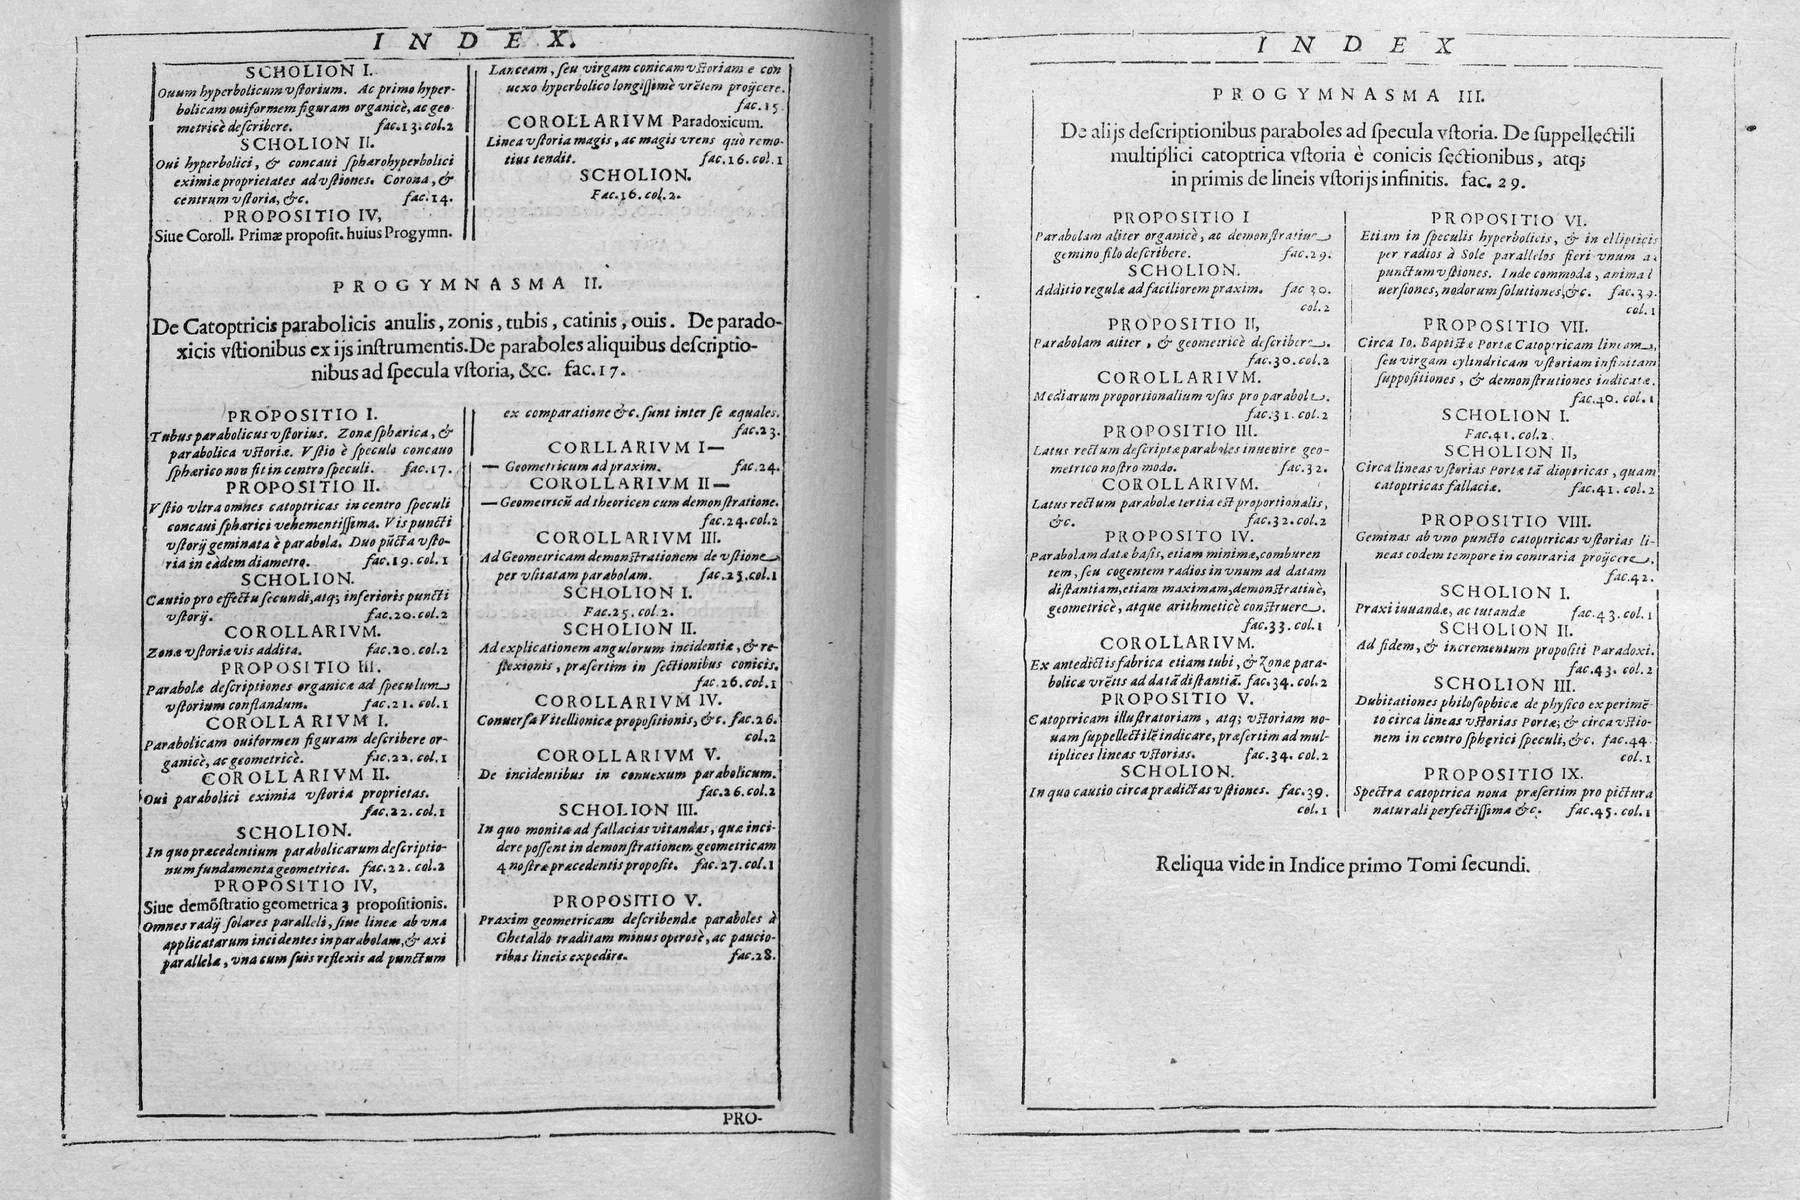 INDEX.
SCHOLION I.
Ouum hyperbolicum vſtorium. Ac primo hyper-
bolicam ouiformem figuram organicè, ac geo-
metricè deſcribere. fac.13.col.2
SCHOLION II.
Oui hyperbolici, & concaui ſphærohyperbolici
eximiæ proprietates ad vſtiones. Corona, &
centrum vſtoria, &c. fac.14.
PROPOSITIO IV,
Siue Coroll. Primæ propoſit. huius Progymn.
Lanceam, ſeu virgam conicam vſtoriam e con
uexo hyperbolico longiſſimè vrẽtem proijcere.
fac.15.
COROLLARIVM Paradoxicum.
Linea vſtoria magis, ac magis vrens quò remo-
tius tendit. fac.16.col.1
SCHOLION.
Fac.16.col.2.
PROGYMNASMA II.
De Catoptricis parabolicis anulis, zonis, tubis, catinis, ouis. De parado-
xicis vſtionibus ex ijs inſtrumentis. De paraboles aliquibus deſcriptio-
nibus ad ſpecula vſtoria, &c. fac.17.
PROPOSITIO I.
Tubus parabolicus vſtorius. Zonæ ſphærica, &
parabolica vſtoriæ. Vſtio è ſpeculo concauo
ſphærico non fit in centro ſpeculi. fac.17.
PROPOSITIO II.
Vſtio vltra omnes catoptricas in centro ſpeculi
concaui ſphærici vehementiſſima. Vis puncti
vſtorij geminata è parabola. Duo pũcta vſto-
ria in eadem diametro. fac.19.col.1
SCHOLION.
Cautio pro effectu ſecundi, atq; inferioris puncti
vſtorij. fac.20.col.2
COROLLARIVM.
Zonæ vſtoriæ vis addita. fac.20.col.2
PROPOSITIO III.
Parabolæ deſcriptiones organicæ ad ſpeculum
vſtorium conflandum. fac.21.col.1
COROLLARIVM I.
Parabolicam ouiformen figuram deſcribere or-
ganicè, ac geometricè. fac.22.col.1
COROLLARIVM II.
Oui parabolici eximia vſtoria proprietas.
fac.22.col.1
SCHOLION.
In quo præcedentium parabolicarum deſcriptio-
num fundamenta geometrica. fac.22.col.2
PROPOSITIO IV,
Siue demõſtratio geometrica 3 propoſitionis.
Omnes radij ſolares paralleli, ſiue lineæ ab vna
applicatarum incidentes in parabolam, & axi
parallelæ, vna cum ſuis reflexis ad punctum
ex comparatione &c. ſunt inter ſe æquales.
fac.23.
CORLLARIVM I—
— Geometricum ad praxim. fac.24.
COROLLARIVM II—
— Geometricũ ad theoricen cum demonſtratione.
fac.24.col.2
COROLLARIVM III.
Ad Geometricam demonſtrationem de vſtione
per vſitatam parabolam. fac.25.col.1
SCHOLION I.
Fac.25.col.2.
SCHOLION II.
Ad explicationem angulorum incidentiæ, & re-
flexionis, præſertim in ſectionibus conicis.
fac.26.col.1
COROLLARIVM IV.
Conuerſa Vitellionicæ propoſitionis, &c. fac.26.
col.2
COROLLARIVM V.
De incidentibus in conuexum parabolicum.
fac.26.col.2
SCHOLION III.
In quo monita ad fallacias vitandas, quæ inci-
dere poſſent in demonſtrationem geometricam
4 noſtræ præcedentis propoſit. fac.27.col.1
PROPOSITIO V.
Praxim geometricam deſcribendæ paraboles à
Ghetaldo traditam minus operosè, ac paucio-
ribus lineis expedire. fac.28.
PRO-
INDEX
PROGYMNASMA III.
De alijs deſcriptionibus paraboles ad ſpecula vſtoria. De ſuppellectili
multiplici catoptrica vſtoria è conicis ſectionibus, atq;
in primis de lineis vſtorijs infinitis. fac. 29.
PROPOSITIO I
Parabolam aliter organicè, ac demonſtratiuè
gemino filo deſcribere. fac.29.
SCHOLION.
Additio regulæ ad faciliorem praxim. fac 30.
col.2
PROPOSITIO II,
Parabolam aliter, & geometricè deſcribere.
fac.30.col.2
COROLLARIVM.
Mediarum proportionalium vſus pro parabole.
fac.31.col.2
PROPOSITIO III.
Latus rectum deſcriptæ paraboles inuenire geo-
metrico noſtro modo. fac.32.
COROLLARIVM.
Latus rectum parabolæ tertia eſt proportionalis,
&c. fac.32.col.2
PROPOSITO IV.
Parabolam datæ baſis, etiam minimæ, comburen
tem, ſeu cogentem radios in vnum ad datam
diſtantiam, etiam maximam, demonſtratiuè,
geometricè, atque arithmeticè conſtruere.
fac.33.col.1
COROLLARIVM.
Ex antedictis fabrica etiam tubi, & Zonæ para-
bolicæ vrẽtis ad datã diſtantiã. fac.34.col.2
PROPOSITIO V.
Catoptricam illuſtratoriam, atq; vſtoriam no-
uam ſuppellectilẽ indicare, præſertim ad mul-
tiplices lineas vſtorias. fac.34.col.2
SCHOLION.
In quo cautio circa prædictas vſtiones. fac.39.
col.1
PROPOSITIO VI.
Etiam in ſpeculis hyperbolicis, & in ellipticis
per radios à Sole parallelos fieri vnum ad
punctum vſtiones. Inde commoda, animad
uerſiones, nodorum ſolutiones, &c. fac.39.
col.1
PROPOSITIO VII.
Circa Io. Baptiſtæ Portæ Catoptricam lineam,
ſeu virgam cylindricam vſtoriam infinitam
ſuppoſitiones, & demonſtrationes indicatæ.
fac.40.col.1
SCHOLION I.
Fac.41.col.2.
SCHOLION II,
Circa lineas vſtorias Portæ tã dioptricas, quam
catoptricas fallaciæ. fac.41.col.2
PROPOSITIO VIII.
Geminas ab vno puncto catoptricas vſtorias li-
neas eodem tempore in contraria proijcere.
fac.42.
SCHOLION I.
Praxi iuuandæ, ac tutandæ fac.43.col.1
SCHOLION II.
Ad fidem, & incrementum propoſiti Paradoxi.
fac.43.col.2
SCHOLION III.
Dubitationes philoſophicæ de phyſico experimẽ-
to circa lineas vſtorias Portæ; & circa vſtio-
nem in centro ſphęrici ſpeculi, &c. fac.44.
col.1
PROPOSITIO IX.
Spectra catoptrica noua præſertim pro pictura
naturali perfectiſſima &c. fac.45.col.1
Reliqua vide in Indice primo Tomi ſecundi.